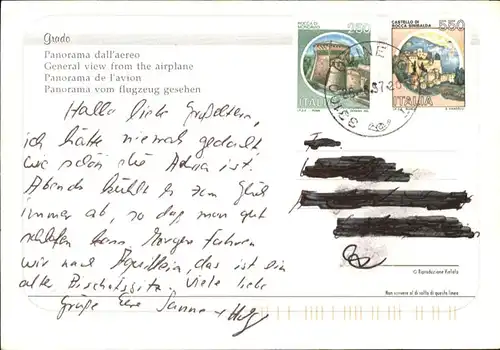 Grado
Panorama dall'aereo
General view from the airplane
Panorama de l'avion
Panorama vom flugzeug gesehen
ROCCA DI
MONDAVIO
250
ITALIA
CASTELLO DI
ROCCA SINIBALDA
550
ITALIA
Hallo liebe Großeltern,
ich hätte niemals gedacht
wie schön die Adria ist.
Abends kühlt es zum Glück
immer ab, so daß man gut
schlafen kann. Morgen fahren
wir nach Aquileia, das ist ein
alter Bischofssitz. Viele liebe
Grüße Eure Sanne +
© Riproduzione Vietata
Non scrivere al di sotto di questa linea